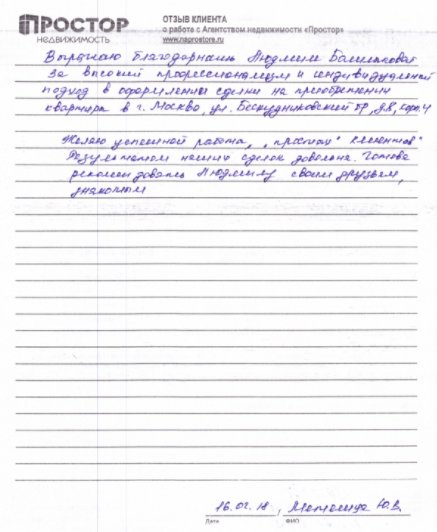 ПРОСТОР
НЕДВИЖИМОСТЬ
ОТЗЫВ КЛИЕНТА
о работе с Агентством недвижимости «Простор»
www.naprostore.ru
Выражаю благодарность Людмиле
за высокий профессионализм и индивидуальный
подход в оформлении сделки на приобретение
квартиры в г. Москва, ул. Бескудниковский
Желаю успешной работы, „простых" клиентов"
Результатом нашей сделки довольна. Готова
рекомендовать Людмилу своим друзьям,
знакомым
Дата
ФИО